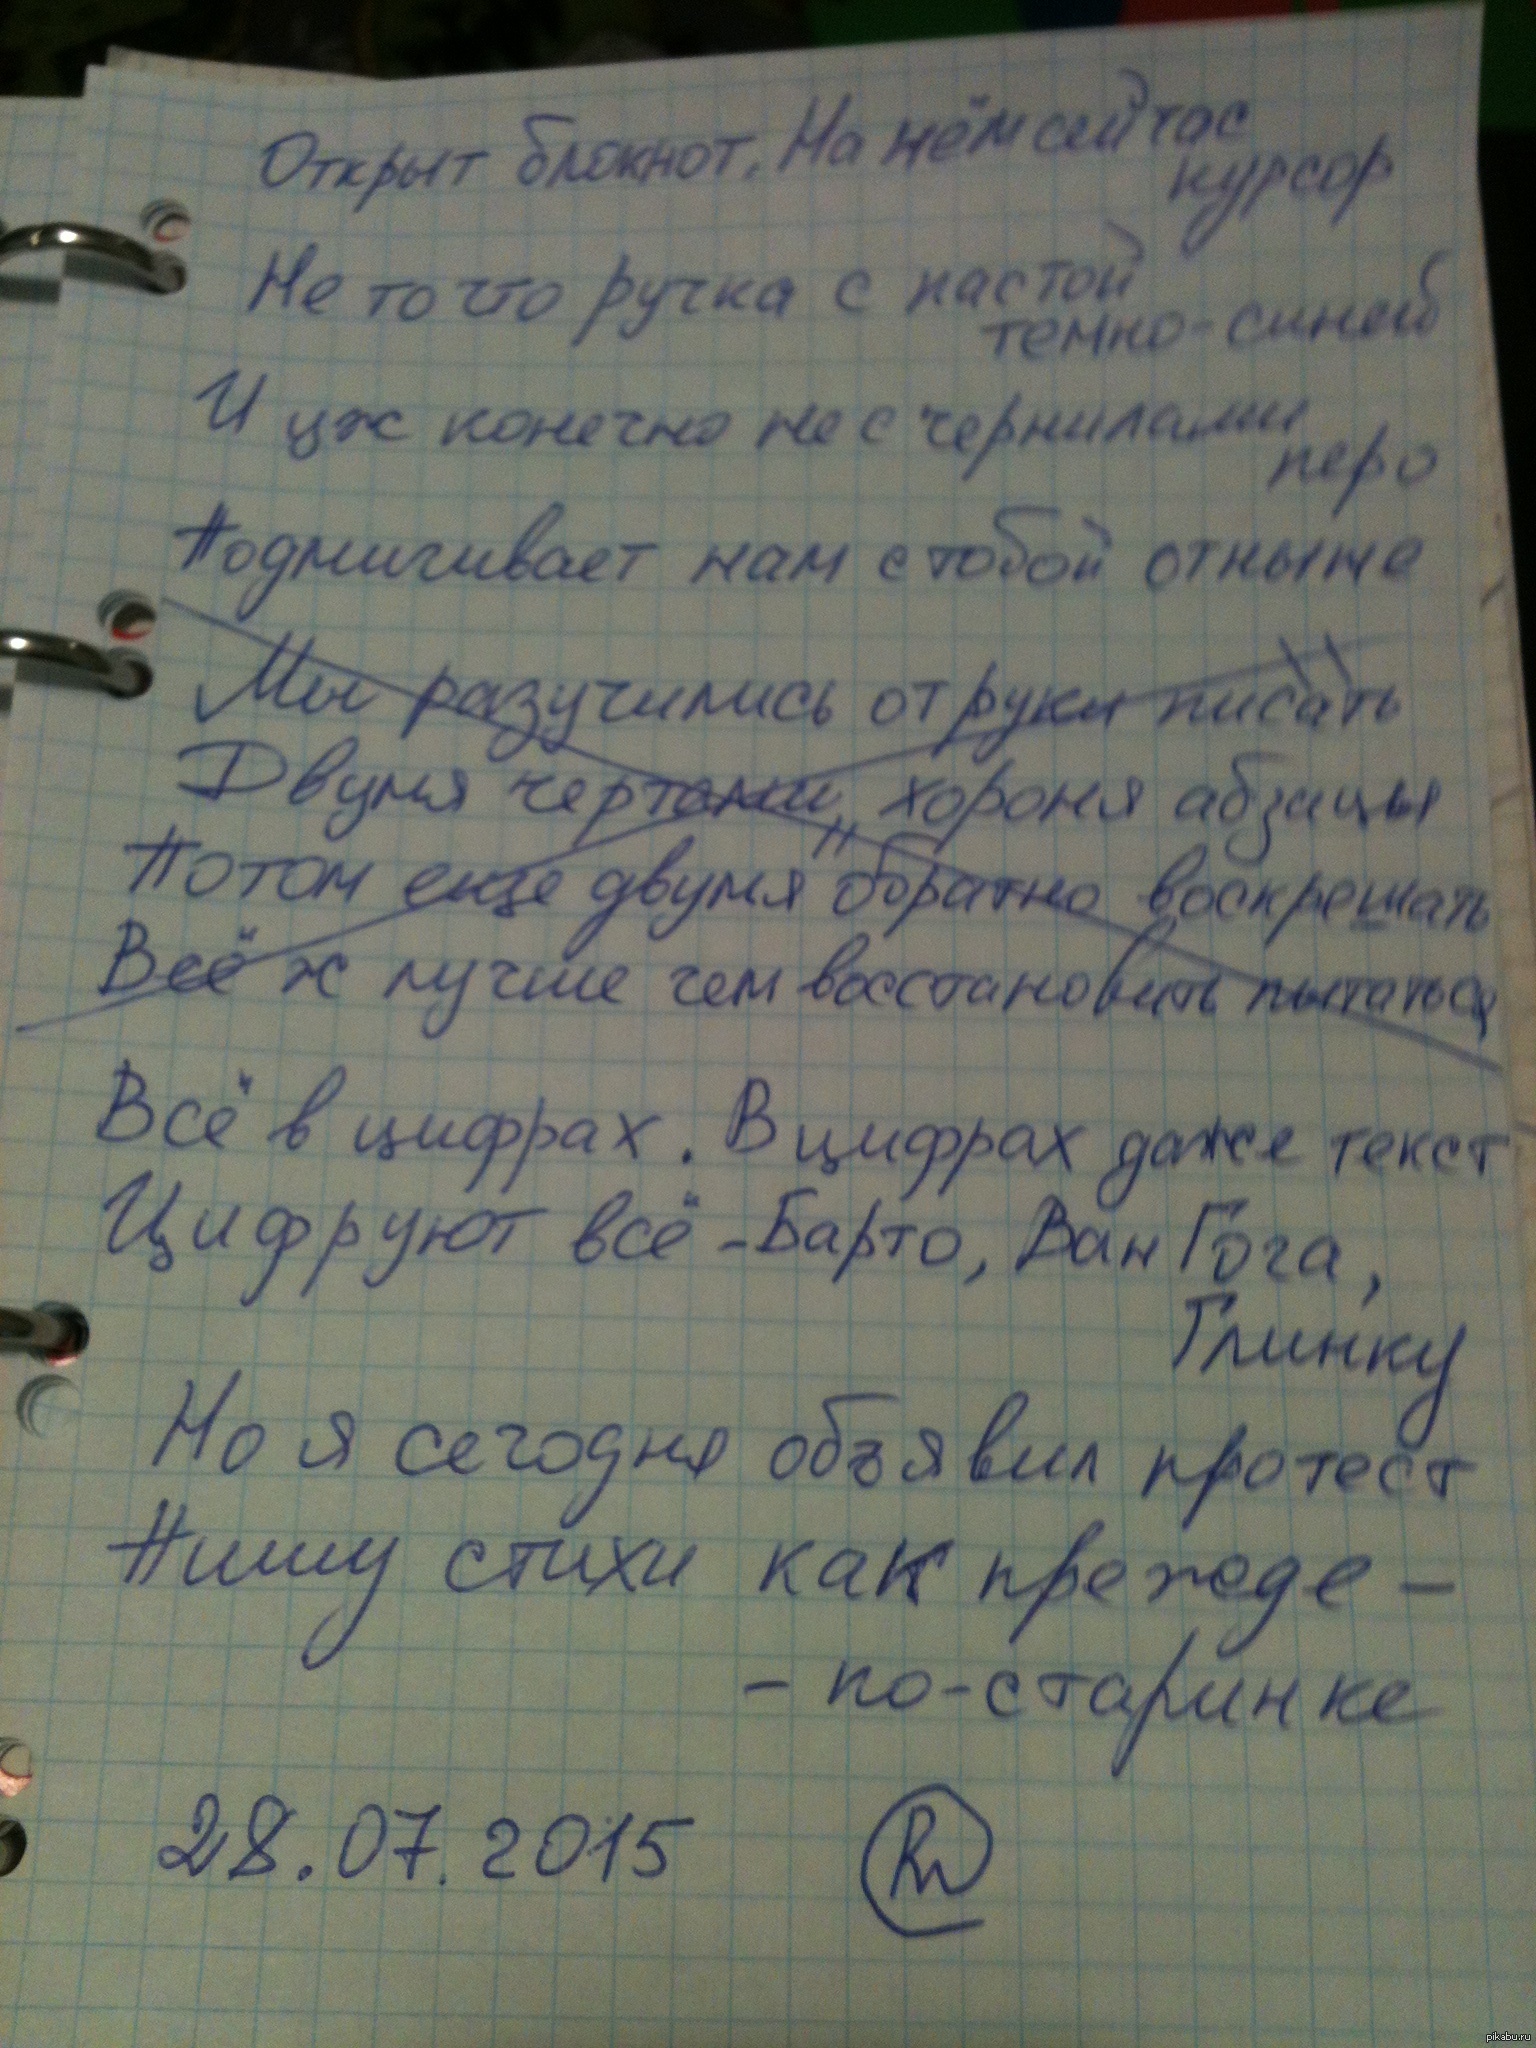 Открыт блокнот. На нём сейчас
курсор
Не то что ручка с пастой
темно-синей
И уж конечно не с чернилами
перо
Подмигивает нам с тобой отныне
Мы разучились от руки писать
Двумя чертами, хороня абзацы
Потом еще двумя обратно воскрешать
Всё ж лучше чем восстановить пытаться
Всё в цифрах. В цифрах даже текст
Цифруют всё - Барто, Ван Гога,
Глинку
Но я сегодня объявил протест
Пишу стихи как прежде -
- по-старинке
28.07.2015
pikabu.ru